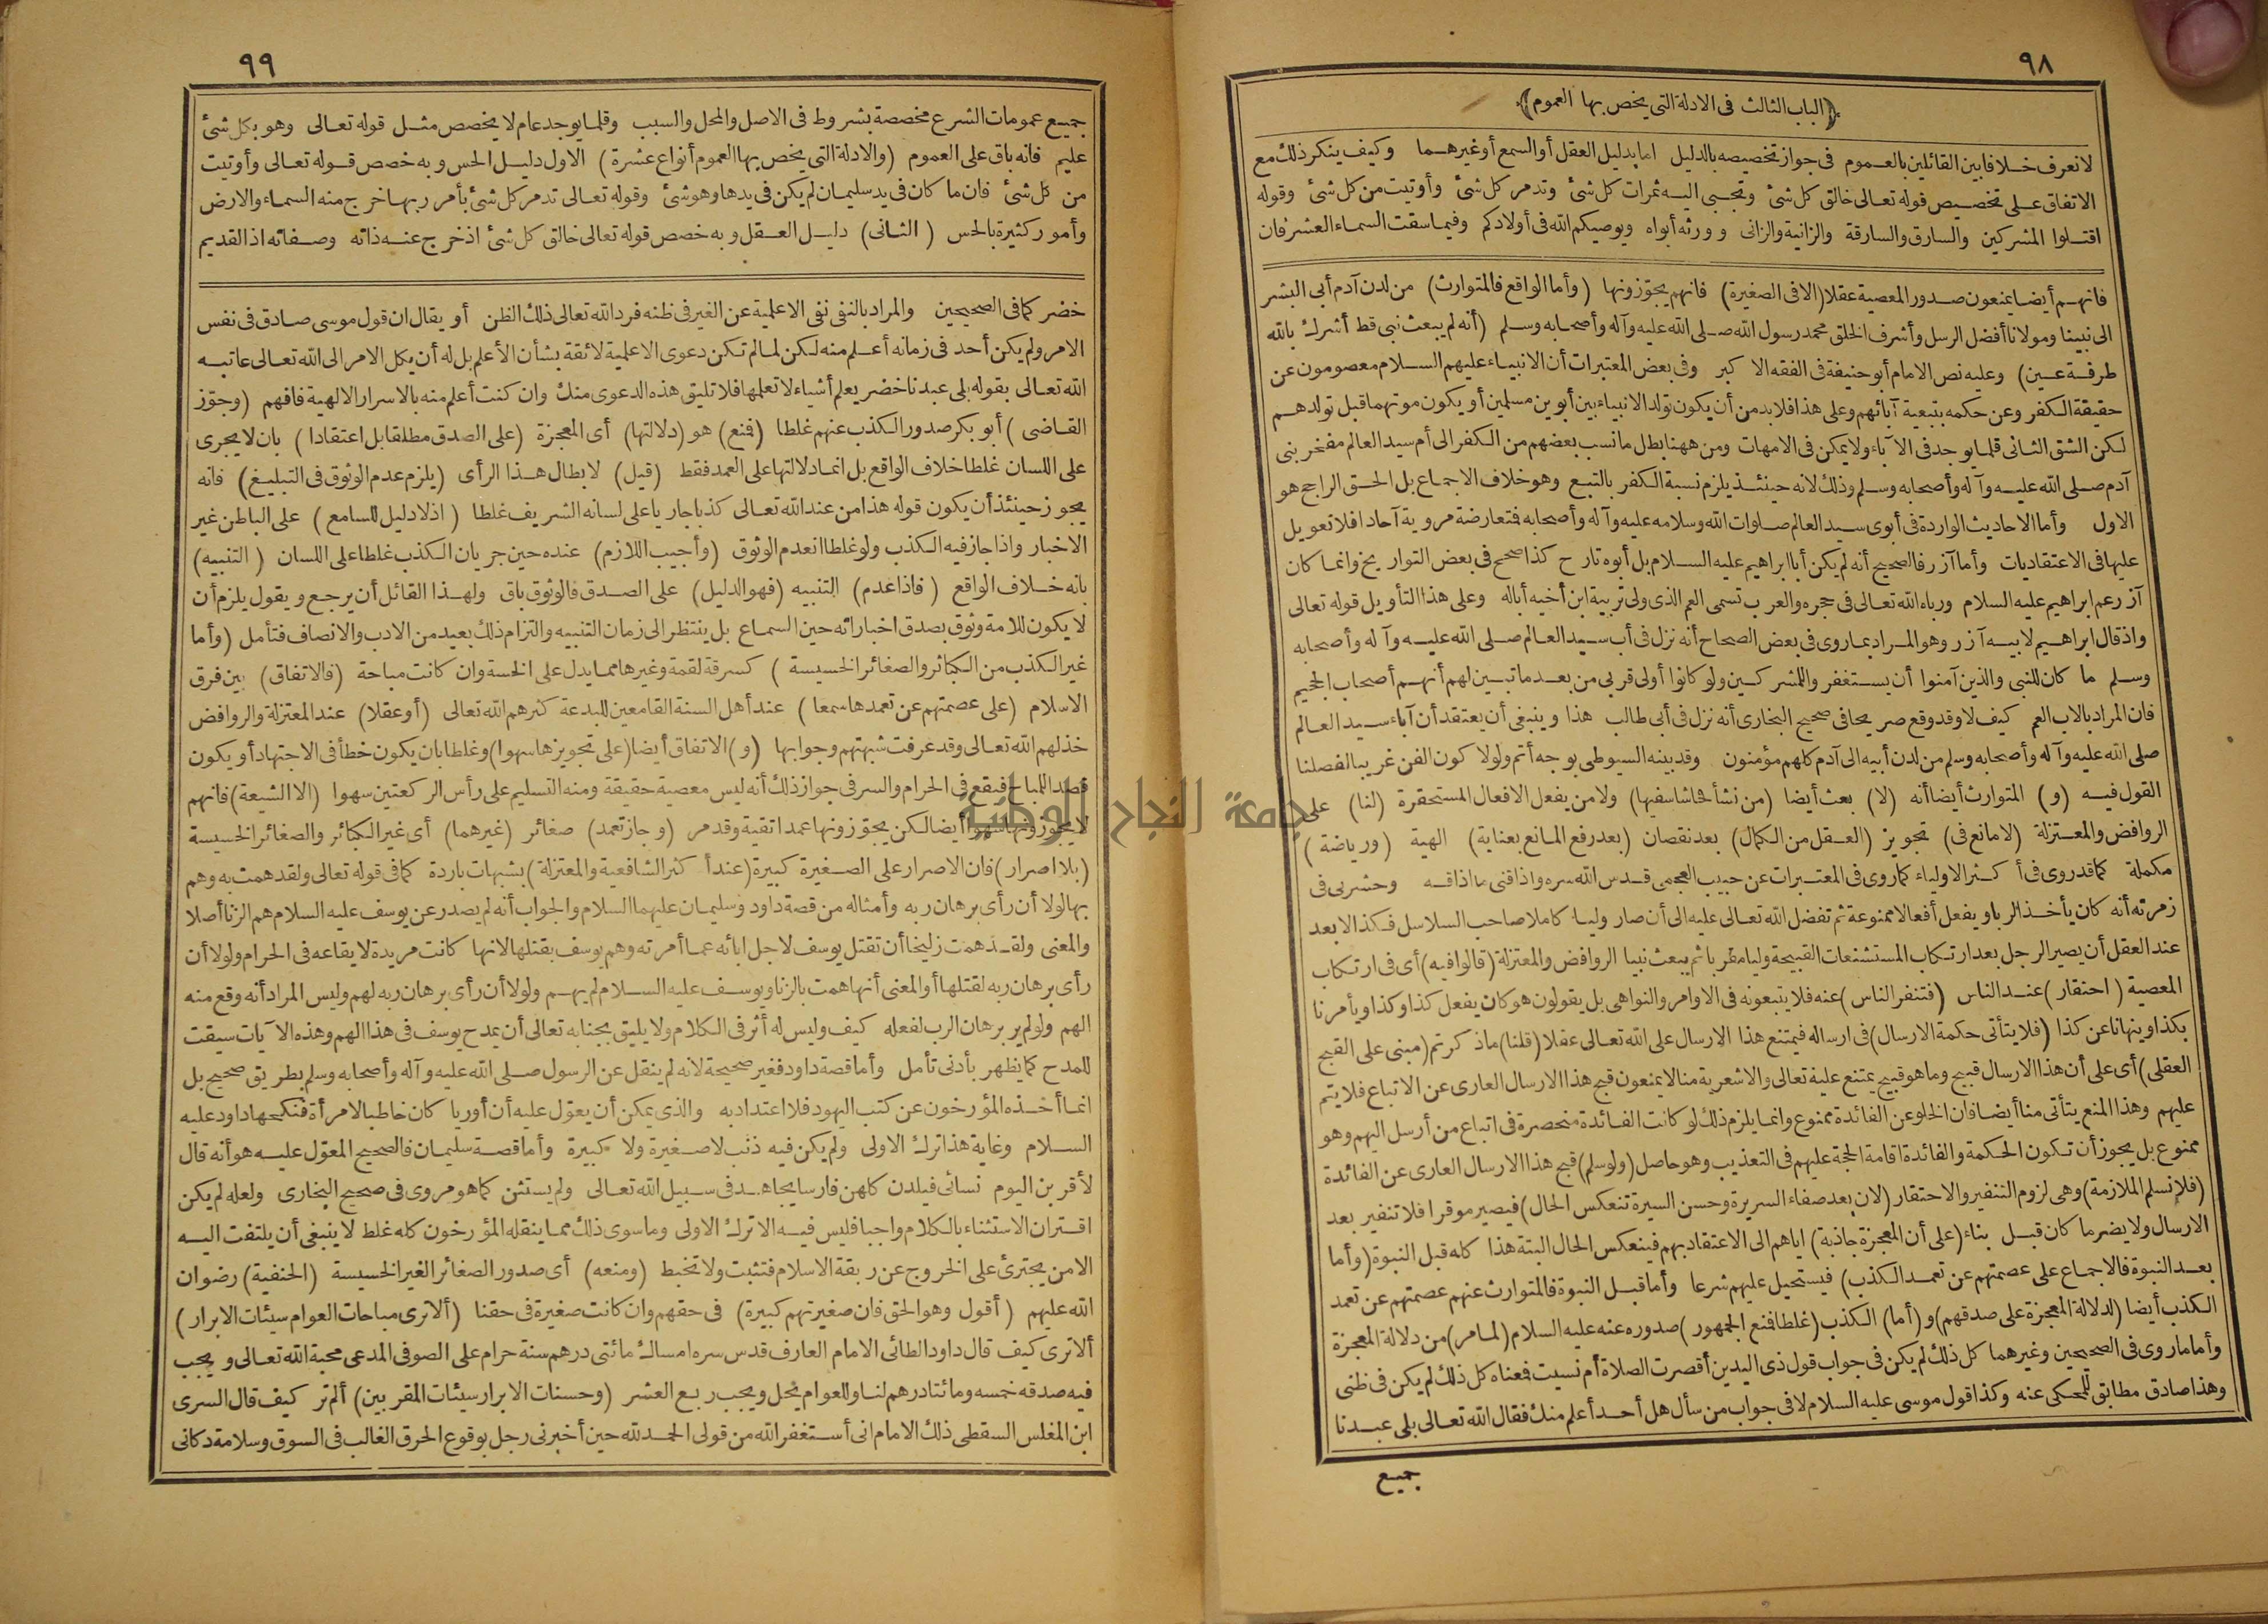 ٩٨
﴿الباب الثالث فى الادلة التى يخص بها العموم﴾
لا نعرف خلافا بين القائلين بالعموم فى جواز تخصيصه بالدليل اما بدليل العقل أو السمع أو غيرهما وكيف ينكر ذلك مع
الاتفاق على تخصيص قوله تعالى خالق كل شئ وتجبى اليه ثمرات كل شئ وتدمر كل شئ وأوتيت من كل شئ وقوله
اقتلوا المشركين والسارق والسارقة والزانية والزانى وورثه أبواه ويوصيكم الله فى أولادكم وفيما سقت السماء العشر فان
فانهم أيضا يمنعون صدور المعصية عقلا (الا فى الصغيرة) فانهم يجوّزونها (وأما الواقع فالمتوارث) من لدن آدم أبى البشر
الى نبينا ومولانا أفضل الرسل وأشرف الخلق محمد رسول الله صلى الله عليه وآله وأصحابه وسلم (أنه لم يبعث نبى قط أشرك بالله
طرفة عين) وعليه نص الامام أبو حنيفة فى الفقه الاكبر وفى بعض المعتبرات أن الانبياء عليهم السلام معصومون عن
حقيقة الكفر وعن حكمه بتبعية آبائهم وعلى هذا فلا بد من أن يكون تولد الانبياء بين أبوين مسلمين أو يكون موتهما قبل تولدهم
لكن الشق الثانى قلما يوجد فى الآباء ولا يمكن فى الامهات ومن ههنا بطل ما نسب بعضهم من الكفر الى أم سيد العالم مفخر بنى
آدم صلى الله عليه وآله وأصحابه وسلم وذلك لانه حينئذ يلزم نسبة الكفر بالتبع وهو خلاف الاجماع بل الحق الراجح هو
الاول وأما الاحاديث الواردة فى أبوى سيد العالم صلوات الله وسلامه عليه وآله وأصحابه فتعارضة مروية آحادا فلا تعويل
عليها فى الاعتقاديات وأما آزر فالصحيح أنه لم يكن أبا ابراهيم عليه السلام بل أبوه تارح كذا صحح فى بعض التواريخ وانما كان
آزر عم ابراهيم عليه السلام ورباه الله تعالى فى حجره والعرب تسمى العم الذى ولى تربية ابن أخيه أباله وعلى هذا التأويل قوله تعالى
واذ قال ابراهيم لابيه آزر وهو المراد بما روى فى بعض الصحاح أنه نزل فى أب سيد العالم صلى الله عليه وآله وأصحابه
وسلم ما كان للنبى والذين آمنوا أن يستغفروا للمشركين ولو كانوا أولى قربى من بعد ما تبين لهم أنهم أصحاب الجحيم
فان المراد بالاب العم كيف لا وقد وقع صريحا فى صحيح البخارى أنه نزل فى أبى طالب هذا وينبغى أن يعتقد أن آباء سيد العالم
صلى الله عليه وآله وأصحابه وسلم من لدن أبيه الى آدم كلهم مؤمنون وقد بينه السيوطى بوجه أتم ولولا كون الفن غريبا لفصلنا
القول فيه (و) المتوارث أيضا أنه (لا) بعث أيضا (من نشأ فحاشا سفيها) ولا من يفعل الافعال المستحقرة (لنا) على
الروافض والمعتزلة (لا مانع فى) تجويز (العقل من الكمال) بعد نقصان (بعد رفع المانع بعناية) الهية (ورياضة)
مكملة كما قد روى فى أكثر الاولياء كما روى فى المعتبرات عن حبيب العجمى قدس الله سره واذاقنى ما اذاقه وحشرنى فى
زمرته أنه كان يأخذ الربا ويفعل أفعالا ممنوعة ثم تفضل الله تعالى عليه الى أن صار وليا كاملا صاحب السلاسل فكذا لا بعد
عند العقل أن يصير الرجل بعد ارتكاب المستشنعات القبيحة وليا مقربا ثم يبعث نبيا الروافض والمعتزلة (قالوا فيه) أى فى ارتكاب
المعصية (احتقار) عند الناس (فتنفر الناس) عنه فلا يتبعونه فى الاوامر والنواهى بل يقولون هو كان يفعل كذا وكذا ويأمرنا
بكذا وينهانا عن كذا (فلا يتأتى حكمة الارسال) فى ارساله فيمتنع هذا الارسال على الله تعالى عقلا (قلنا) ما ذكرتم (مبنى على القبح
العقلى) أى على أن هذا الارسال قبيح وما هو قبيح يمتنع عليه تعالى والاشعرية منا لا يمنعون قبح هذا الارسال العارى عن الاتباع فلا يتم
عليهم وهذا المنع يتأتى منا أيضا فان الخلو عن الفائدة ممنوع وانما يلزم ذلك لو كانت الفائدة منحصرة فى اتباع من أرسل اليهم وهو
ممنوع بل يجوز أن تكون الحكمة والفائدة اقامة الحجة عليهم فى التعذيب وهو حاصل (ولو سلم) قبح هذا الارسال العارى عن الفائدة
(فلا نسلم الملازمة) وهى لزوم التنفير والاحتقار (لان بعد صفاء السريرة وحسن السيرة تنعكس الحال) فيصير موقرا فلا تنفير بعد
الارسال ولا يضر ما كان قبل بناء (على أن المعجزة جاذبة) اياهم الى الاعتقاد بهم فينعكس الحال البتة هذا كله قبل النبوة (وأما
بعد النبوة فالاجماع على عصمتهم عن تعمد الكذب) فيستحيل عليهم شرعا وأما قبل النبوة فالمتوارث عنهم عصمتهم عن تعمد
الكذب أيضا (لدلالة المعجزة على صدقهم) و(أما) الكذب (غلطا فمنع الجمهور) صدوره عنه عليه السلام (لما مر) من دلالة المعجزة
وأما ما روى فى الصحيحين وغيرهما كل ذلك لم يكن فى جواب قول ذى اليدين أقصرت الصلاة أم نسيت فعناه كل ذلك لم يكن فى ظنى
وهذا صادق مطابق للمحكى عنه وكذا قول موسى عليه السلام لا فى جواب من سأل هل أحد أعلم منك فقال الله تعالى بلى عبدنا
جميع
٩٩
جميع عمومات الشرع مخصصة بشروط فى الاصل والمحل والسبب وقلما يوجد عام لا يخصص مثل قوله تعالى وهو بكل شئ
عليم فانه باق على العموم (والادلة التى يخص بها العموم أنواع عشرة) الاول دليل الحس وبه خصص قوله تعالى وأوتيت
من كل شئ فان ما كان فى يد سليمان لم يكن فى يدها وهو شئ وقوله تعالى تدمر كل شئ بأمر ربها خرج منه السماء والارض
وأمور كثيرة بالحس (الثانى) دليل العقل وبه خصص قوله تعالى خالق كل شئ اذ خرج عنه ذاته وصفاته اذ القديم
خضر كما فى الصحيحين والمراد بالنفى نفى الاعلمية عن الغير فى ظنه فرد الله تعالى ذلك الظن أو يقال ان قول موسى صادق فى نفس
الامر ولم يكن أحد فى زمانه أعلم منه لكن لما لم تكن دعوى الاعلمية لائقة بشأن الأعلم بل له أن يكل الامر الى الله تعالى عاتبه
الله تعالى بقوله بلى عبدنا خضر يعلم أشياء لا تعلمها فلا تليق هذه الدعوى منك وان كنت أعلم منه بالاسرار الالهية فافهم (وجوّز
القاضى) أبو بكر صدور الكذب عنهم غلطا (فمنع) هو (دلالتها) أى المعجزة (على الصدق مطلقا بل اعتقادا) بان لا يجرى
على اللسان غلطا خلاف الواقع بل انما دلالتها على العمد فقط (قيل) لابطال هذا الرأى (يلزم عدم الوثوق فى التبليغ) فانه
يجوز حينئذ أن يكون قوله هذا من عند الله تعالى كذبا جاريا على لسانه الشريف غلطا (اذ لا دليل للسامع) على الباطن غير
الاخبار واذا جاز فيه الكذب ولو غلطا انعدم الوثوق (وأجيب اللازم) عنده حين جريان الكذب غلطا على اللسان (التنبيه)
بانه خلاف الواقع (فاذا عدم) التنبيه (فهو الدليل) على الصدق فالوثوق باق ولهذا القائل أن يرجع ويقول يلزم أن
لا يكون للامة وثوق بصدق اخباراته حين السماع بل ينتظر الى زمان التنبيه والتزام ذلك بعيد من الادب والانصاف فتأمل (وأما
غير الكذب من الكبائر والصغائر الخسيسة) كسرقة لقمة وغيرها مما يدل على الخسة وان كانت مباحة (فالاتفاق) بين فرق
الاسلام (على عصمتهم عن تعمدها سمعا) عند أهل السنة القامعين للبدعة كثرهم الله تعالى (أو عقلا) عند المعتزلة والروافض
خذلهم الله تعالى وقد عرفت شبهتهم وجوابها (و) الاتفاق أيضا (على تجويزها سهوا) وغلطا بان يكون خطأ فى الاجتهاد أو يكون
قصد المباح فيقع فى الحرام والسر فى جواز ذلك أنه ليس معصية حقيقة ومنه التسليم على رأس الركعتين سهوا (الا الشيعة) فانهم
لا يجوّزونها سهوا أيضا لكن يجوّزونها عمدا تقية وقد مر (وجاز تعمد) صغائر (غيرهما) أى غير الكبائر والصغائر الخسيسة
(بلا اصرار) فان الاصرار على الصغيرة كبيرة (عند أكثر الشافعية والمعتزلة) بشبهات باردة كما فى قوله تعالى ولقد همت به وهم
بها لولا أن رأى برهان ربه وأمثاله من قصة داود وسليمان عليهما السلام والجواب أنه لم يصدر عن يوسف عليه السلام هم الزنا أصلا
والمعنى ولقد همت زليخا أن تقتل يوسف لاجل ابائه عما أمرته وهم يوسف بقتلها لانها كانت مريدة لايقاعه فى الحرام ولولا أن
رأى برهان ربه لقتلها أو المعنى أنها همت بالزنا ويوسف عليه السلام لم يهم ولولا أن رأى برهان ربه لهم وليس المراد أنه وقع منه
الهم ولو لم ير برهان الرب لفعله كيف وليس له أثر فى الكلام ولا يليق بجنابه تعالى أن يمدح يوسف فى هذا الهم وهذه الآيات سيقت
للمدح كما يظهر بأدنى تأمل وأما قصة داود فغير صحيحة لانه لم ينقل عن الرسول صلى الله عليه وآله وأصحابه وسلم بطريق صحيح بل
انما أخذه المؤرخون عن كتب اليهود فلا اعتداد به والذى يمكن أن يعوّل عليه أن أوريا كان خاطبا لامرأة فنكحها داود عليه
السلام وغاية هذا ترك الاولى ولم يكن فيه ذنب لا صغيرة ولا كبيرة وأما قصة سليمان فالصحيح المعوّل عليه هو أنه قال
لأقربن اليوم نسائى فيلدن كلهن فارسا يجاهد فى سبيل الله تعالى ولم يستثن كما هو مروى فى صحيح البخارى ولعله لم يكن
اقتران الاستثناء بالكلام واجبا فليس فيه الا ترك الاولى وما سوى ذلك مما ينقله المؤرخون كله غلط لا ينبغى أن يلتفت اليه
الا من يجترئ على الخروج عن ربقة الاسلام فتثبت ولا تخبط (ومنعه) أى صدور الصغائر الغير الخسيسة (الحنفية) رضوان
الله عليهم (أقول وهو الحق فان صغيرتهم كبيرة) فى حقهم وان كانت صغيرة فى حقنا (ألا ترى مباحات العوام سيئات الابرار)
ألا ترى كيف قال داود الطائى الامام العارف قدس سره امساك مائتى درهم سنة حرام على الصوفى المدعى محبة الله تعالى ويجب
فيه صدقه خمسه ومائتا درهم لنا وللعوام يحل ويجب ربع العشر (وحسنات الابرار سيئات المقربين) ألم تر كيف قال السرى
ابن المغلس السقطى ذلك الامام انى أستغفر الله من قولى الحمد لله حين أخبرنى رجل بوقوع الحرق الغالب فى السوق وسلامة دكانى
جامعة النجاح الوطنية